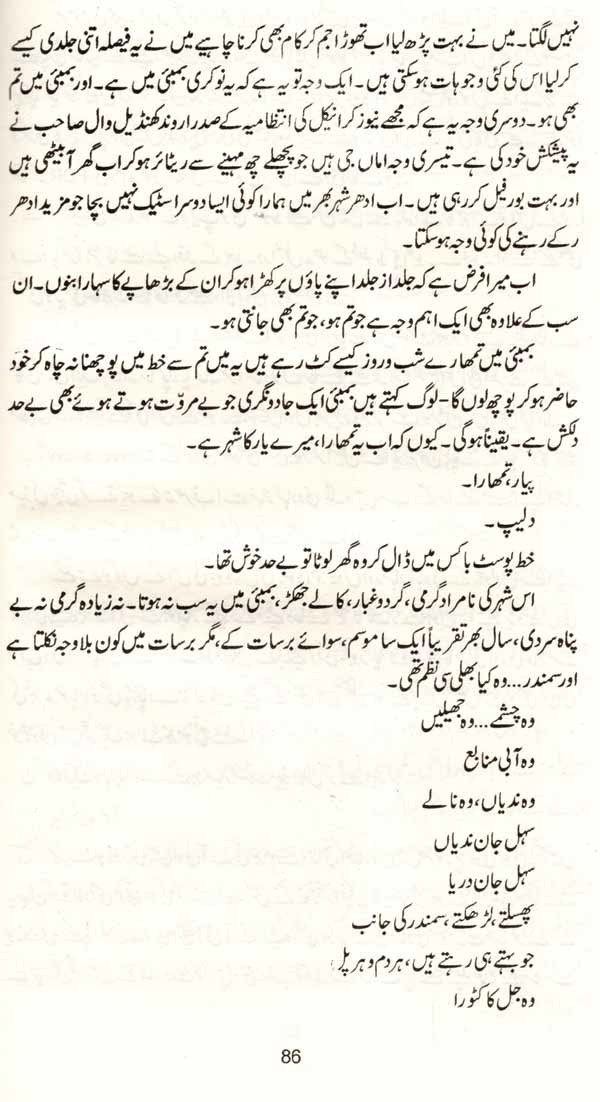 نہیں لگتا۔ میں نے بہت پڑھ لیا اب تھوڑا جم کر کام بھی کرنا چاہیے میں نے یہ فیصلہ اتنی جلدی کیسے
کر لیا اس کی کئی وجوہات ہو سکتی ہیں۔ ایک وجہ تو یہ ہے کہ یہ نوکری بمبئی میں ہے۔ اور بمبئی میں تم
بھی ہو۔ دوسری وجہ یہ ہے کہ مجھے نیوز کرانیکل کی انتظامیہ کے صدر اروند کھنڈیل وال صاحب نے
یہ پیشکش خود کی ہے۔ تیسری وجہ اماں جی ہیں جو پچھلے چھ مہینے سے ریٹائر ہو کر اب گھر آ بیٹھی ہیں
اور بہت بور فیل کر رہی ہیں۔ اب ادھر شہر بھر میں ہمارا کوئی ایسا دوسرا سٹیک نہیں بچا جو مزید ادھر
رکے رہنے کی کوئی وجہ ہو سکتا۔
اب میرا فرض ہے کہ جلد از جلد اپنے پاؤں پر کھڑا ہو کر ان کے بڑھاپے کا سہارا بنوں۔ ان
سب کے علاوہ بھی ایک اہم وجہ ہے جو تم ہو، جو تم بھی جانتی ہو۔
بمبئی میں تمھارے شب و روز کیسے کٹ رہے ہیں یہ میں تم سے خط میں پوچھنا نہ چاہ کر خود
حاضر ہو کر پوچھ لوں گا- لوگ کہتے ہیں بمبئی ایک جادو نگری جو بے مروّت ہوتے ہوئے بھی بے حد
دلکش ہے۔ یقیناً ہو گی۔ کیوں کہ اب یہ تمھارا، میرے یار کا شہر ہے۔
پیار، تمھارا۔
دلیپ۔
خط پوسٹ باکس میں ڈال کر وہ گھر لوٹا تو بے حد خوش تھا۔
اس شہر کی نامراد گرمی، گرد و غبار، کالے جھکڑ، بمبئی میں یہ سب نہ ہوتا۔ نہ زیادہ گرمی نہ بے
پناہ سردی، سال بھر تقریباً ایک سا موسم، سوائے برسات کے، مگر برسات میں کون بلا وجہ نکلتا ہے
اور سمندر... وہ کیا بھلی سی نظم تھی۔
وہ چشمے... وہ جھیلیں
وہ آبی منابع
وہ ندیاں، وہ نالے
سہل جان ندیاں
سہل جان دریا
پھسلتے، لڑھکتے، سمندر کی جانب
جو بہتے ہی رہتے ہیں، ہر دم و ہر پل
وہ جل کا کٹورا
86